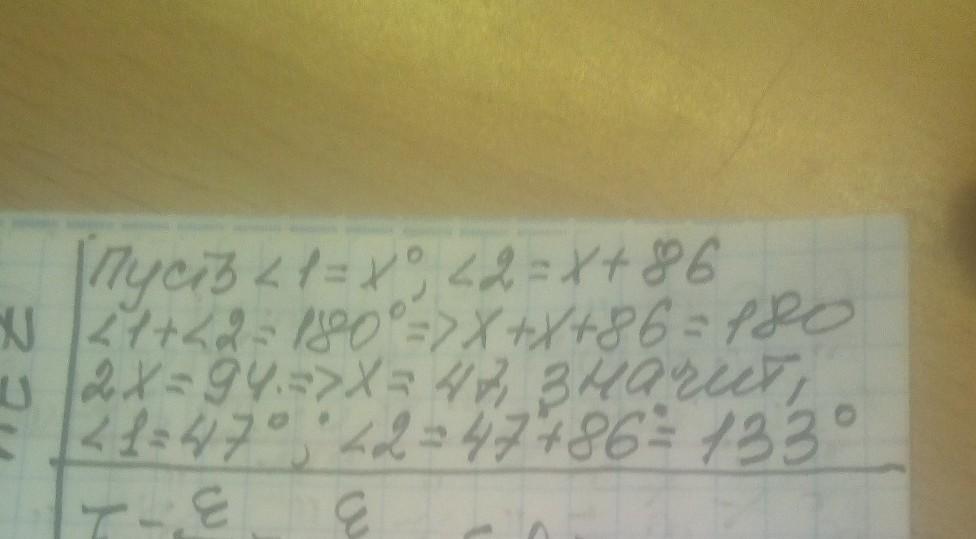 Пусть <1 = x°, <2 = x + 86
<1 + <2 = 180° => x + x + 86 = 180
2x = 94. => x = 47, значит,
<1 = 47° ; <2 = 47° + 86° = 133°